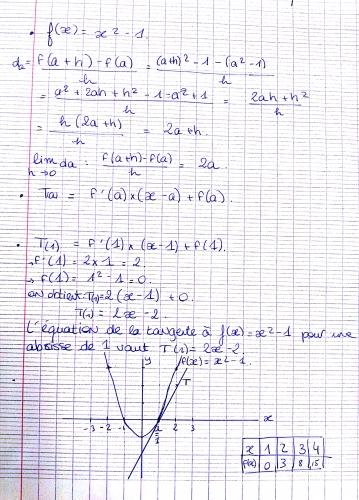 • f(x) = x² - 1.
da = f(a+h) - f(a) / h = (a+h)² - 1 - (a² - 1) / h
= a² + 2ah + h² - 1 - a² + 1 / h = 2ah + h² / h
= h(2a+h) / h = 2a + h.
lim da : f(a+h) - f(a) / h = 2a.
h→0
• T(a) = f'(a) × (x - a) + f(a).
• T(1) = f'(1) × (x - 1) + f(1).
→ f'(1) = 2 × 1 = 2.
→ f(1) = 1² - 1 = 0.
on obtient T(1) = 2(x - 1) + 0.
T(1) = 2x - 2.
L'équation de la tangente à f(x) = x² - 1 pour une
absisse de 1 vaut T(1) = 2x - 2.
y f(x) = x² - 1.
T
-3 -2 -1 1 2 3 x
x 1 2 3 4
f(x) 0 3 8 15